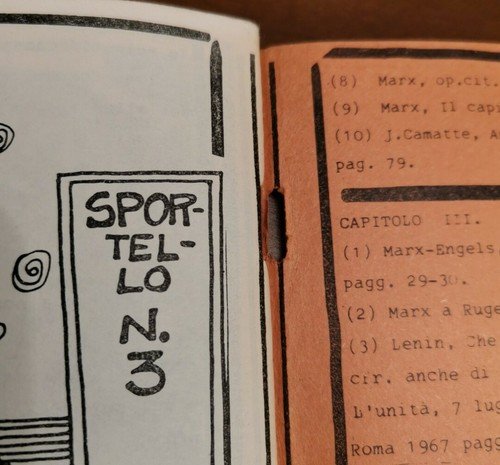 SPOR-
TEL-
LO
N.
3
(8) Marx, op.cit.
(9) Marx, Il
(10) J.Camatte,
pag. 79.
CAPITOLO III.
(1) Marx-Engels
pagg. 29-30.
(2) Marx a Ruge
(3) Lenin, Che
cir. anche di
L'unità, 7
Roma 1967